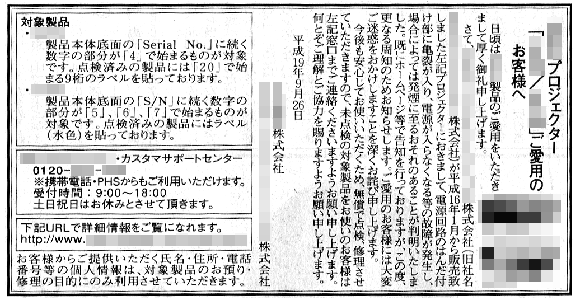 プロジェクター
「　／　」ご愛用の
お客様へ
日頃は　製品のご愛用をいただき
まして厚く御礼申し上げます。
さて、　株式会社（旧社名
　株式会社）が平成16年1月から販売致
しました左記プロジェクターにおきまして、電源回路のはんだ付
け部に亀裂が入り、電源が入らなくなる等の故障が発生し、
場合によっては発煙に至るおそれのあることが判明いたしま
した。既にホームページ等で告知を行っておりますが、この度、
更なる周知のためお知らせします。ご愛用のお客様には大変
ご迷惑をおかけしますことを深くお詫び申し上げます。
今後も安心してお使いいただくため、無償で点検、修理させ
ていただきますので、未点検の対象製品をお使いのお客様は
左記窓口までご連絡くださいますようお願い申し上げます。
何とぞご理解とご協力を賜りますようお願い申し上げます。
平成19年9月26日
株式会社
株式会社
対象製品
製品本体底面の「Serial No.」に続く
数字の部分が「4」で始まるものが対象
です。点検済みの製品には「20」で始
まる9桁のラベルを貼っております。
製品本体底面の「S/N」に続く数字の
部分が「5」、「6」、「7」で始まるものが
対象です。点検済みの製品にはラベル
(水色)を貼っております。
・カスタマサポートセンター
0120-
※携帯電話・PHSからもご利用いただけます。
受付時間：9:00〜18:00
土日祝日はお休みとさせて頂きます。
下記URLで詳細情報をご覧になれます。
http://www.
お客様からご提供いただく氏名・住所・電話
番号等の個人情報は、対象製品のお預り・
修理の目的にのみ利用させていただきます。